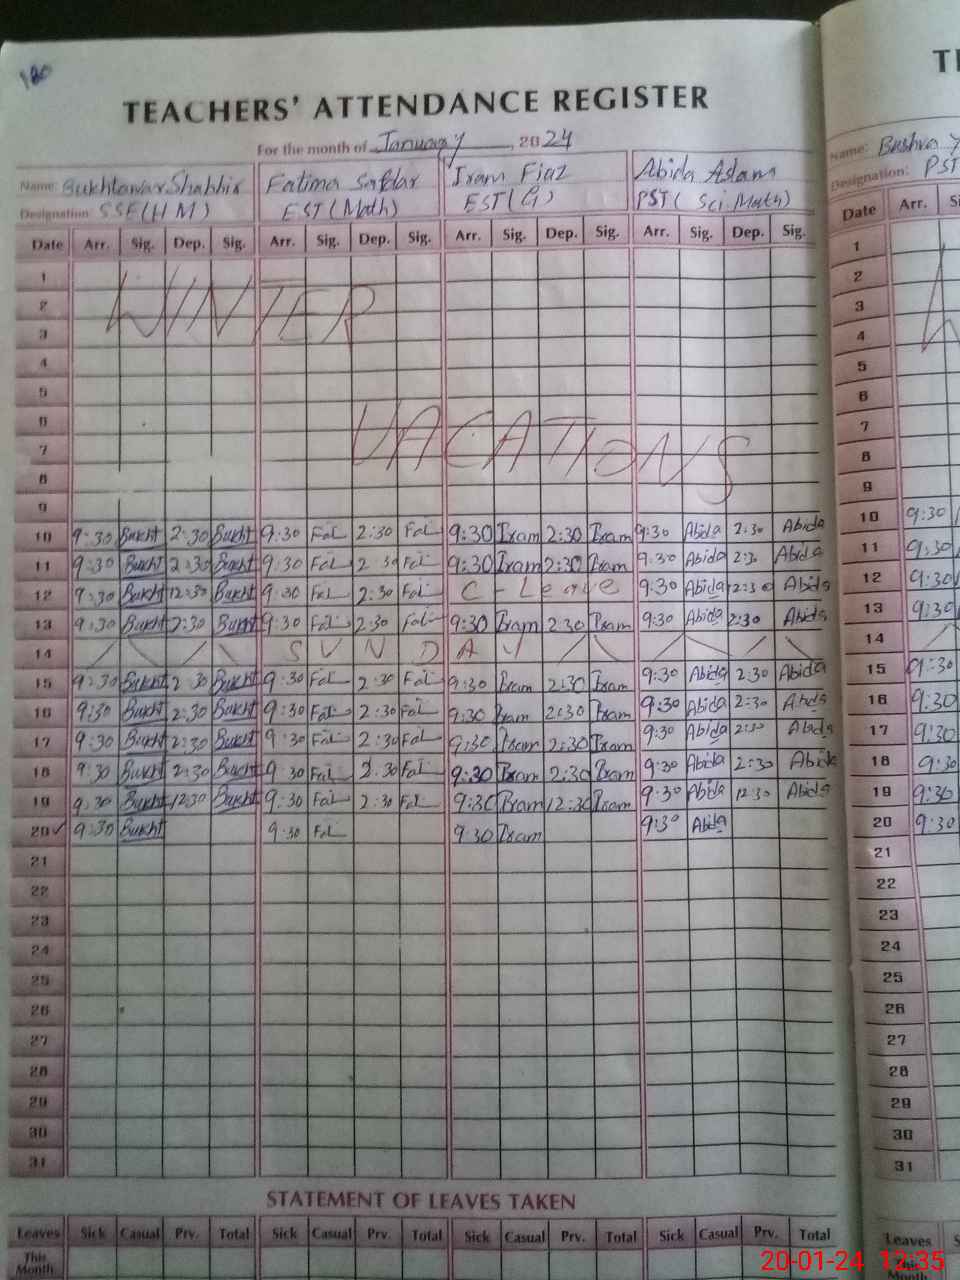 180
TEACHERS' ATTENDANCE REGISTER
For the month of January, 2024
Name: Bukhtawar Shabbir Fatima Safdar Iram Fiaz Abida Aslam
Designation: SSE(HM) EST(Math) EST(G) PST(Sci.Math)
Date Arr. Sig. Dep. Sig. Arr. Sig. Dep. Sig. Arr. Sig. Dep. Sig. Arr. Sig. Dep. Sig.
1
2 WINTER
3
4
5
6
7 VACATIONS
8
9
10 9:30 Bukht 2:30 Bukht 9:30 Fat 2:30 Fat 9:30 Iram 2:30 Iram 9:30 Abida 2:30 Abida
11 9:30 Bukht 2:30 Bukht 9:30 Fat 2:30 Fat 9:30 Iram 2:30 Iram 9:30 Abida 2:30 Abida
12 9:30 Bukht 12:30 Bukht 9:30 Fat 2:30 Fat C-Leave 9:30 Abida 12:30 Abida
13 9:30 Bukht 2:30 Bukht 9:30 Fat 2:30 Fat 9:30 Iram 2:30 Iram 9:30 Abida 2:30 Abida
14 SUNDAY
15 9:30 Bukht 2:30 Bukht 9:30 Fat 2:30 Fat 9:30 Iram 2:30 Iram 9:30 Abida 2:30 Abida
16 9:30 Bukht 2:30 Bukht 9:30 Fat 2:30 Fat 9:30 Iram 2:30 Iram 9:30 Abida 2:30 Abida
17 9:30 Bukht 2:30 Bukht 9:30 Fat 2:30 Fat 9:30 Iram 2:30 Iram 9:30 Abida 2:30 Abida
18 9:30 Bukht 2:30 Bukht 9:30 Fat 2:30 Fat 9:30 Iram 2:30 Iram 9:30 Abida 2:30 Abida
19 9:30 Bukht 12:30 Bukht 9:30 Fat 2:30 Fat 9:30 Iram 12:30 Iram 9:30 Abida 12:30 Abida
20 ✓ 9:30 Bukht 9:30 Fat 9:30 Iram 9:30 Abida
21
22
23
24
25
26
27
28
29
30
31
STATEMENT OF LEAVES TAKEN
Leaves Sick Casual Prv. Total Sick Casual Prv. Total Sick Casual Prv. Total Sick Casual Prv. Total
This Month
Name: Bushra
Designation: PST
Date Arr.
1
2
3
4
5
6
7
8
9
10 9:30
11 9:30
12 9:30
13 9:30
14
15 9:30
16 9:30
17 9:30
18 9:30
19 9:30
20 9:30
21
22
23
24
25
26
27
28
29
30
31
Leaves
This
Month
20-01-24 12:35